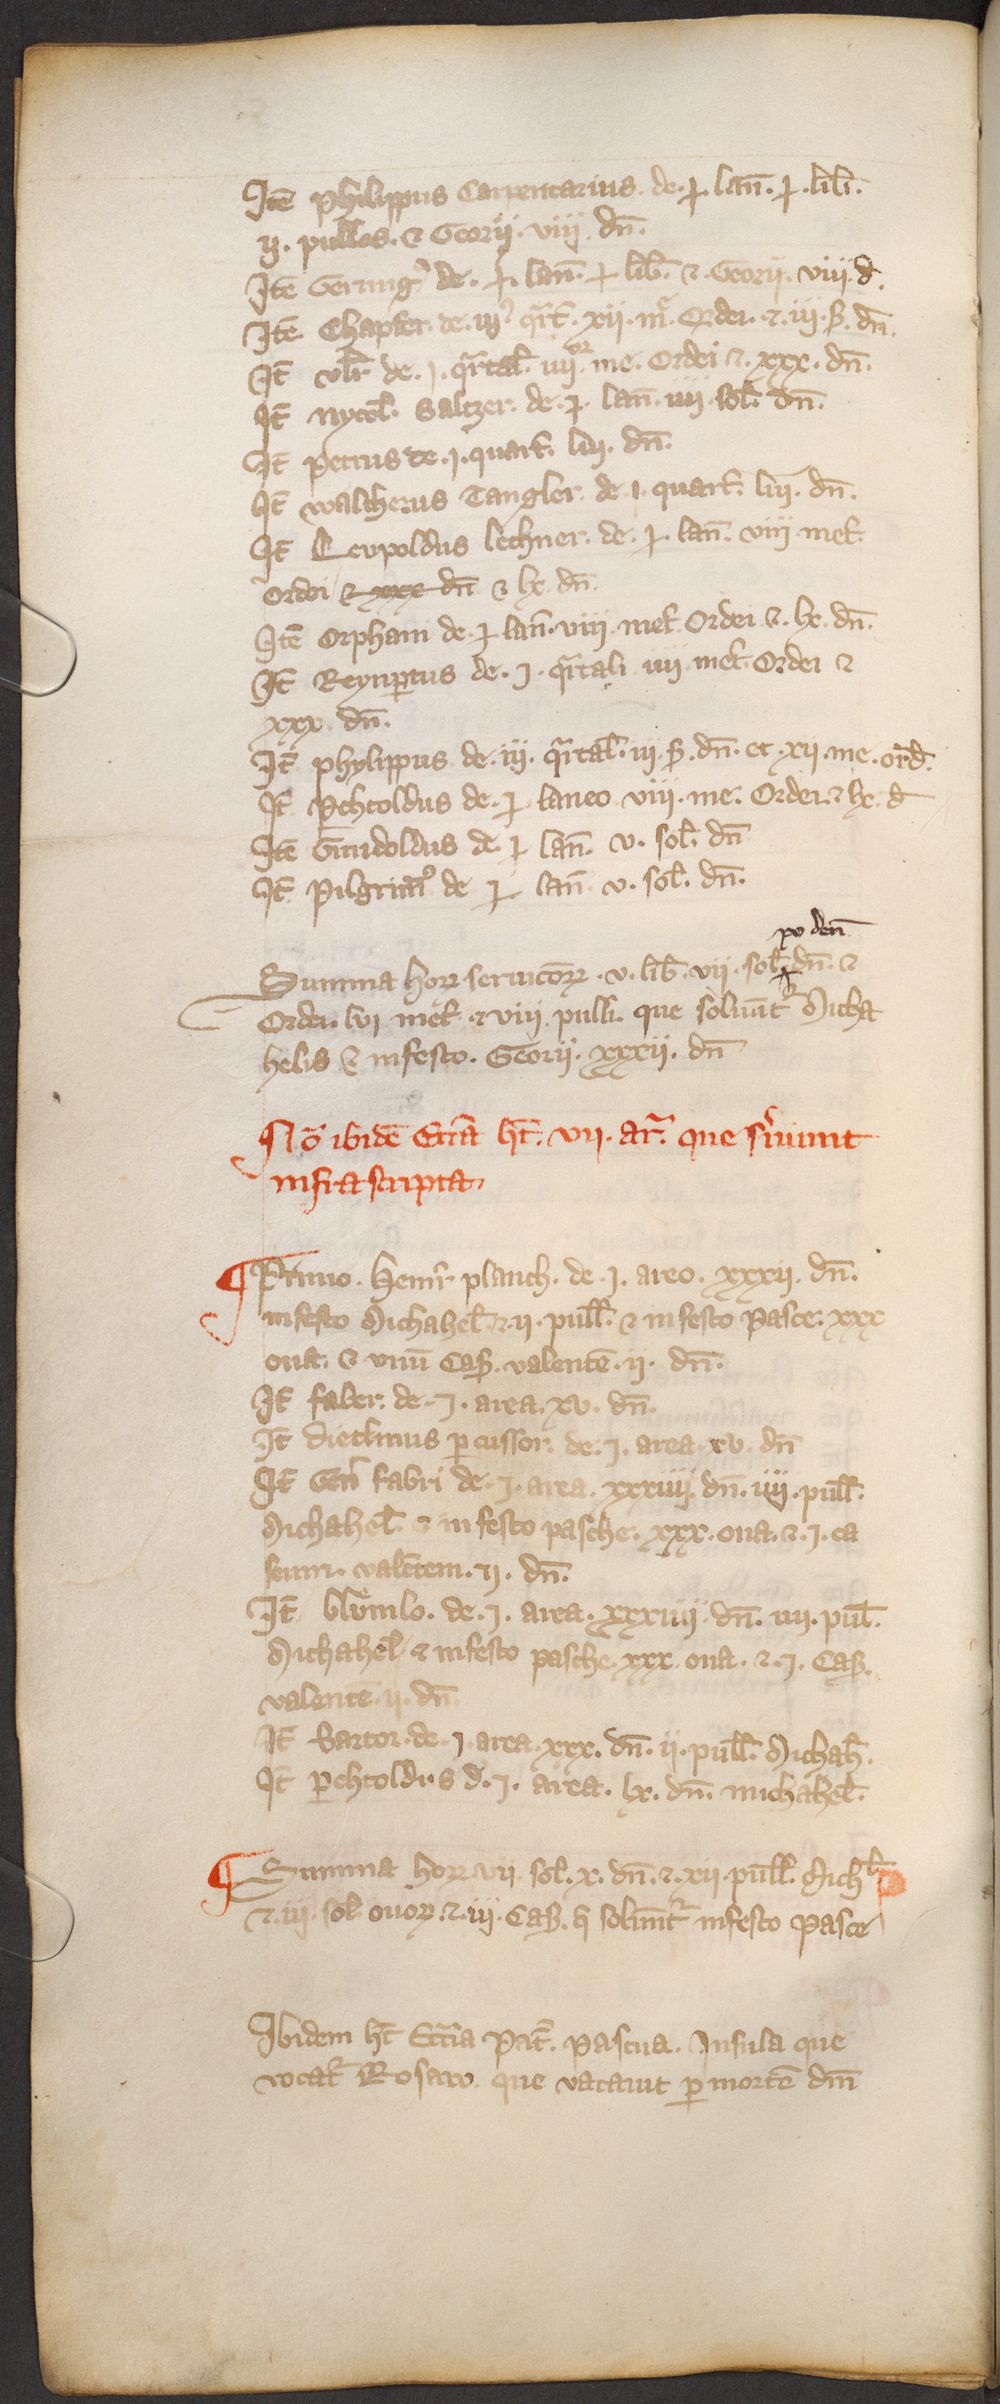 Itē Philippus Carpentarius de ꝭ lan̄. ꝭ lib̄.
ij. pullos. ⁊ Georij. viij dn̄.
Itē Gerung' de. ꝭ. lan̄. ꝭ lib̄. ⁊ Georij. viij. d.
Itē Chapfer. de. iij qrt̄. xij. m̄. Ordei. ⁊ iij. ẜ. dn̄.
It̄ vlr̄ de. j. qrtal̄. iiij or me. Ordei ⁊. xxx. dn̄.
It̄ nycol̄. Saltzer. de. ꝭ. lan̄. iiij. sol̄. dn̄.
It̄ petrus de. j. quart̄. lij. dn̄.
It̄ walcherus Tangler. de. j. quart̄. lij. dn̄.
It̄ Leupoldus lechner. de. ꝭ. lan̄. viij. met̄.
Ordei ⁊ xxx dn̄ ⁊ lx. dn̄.
Itē Orphani de. ꝭ lan̄. viij. met̄. Ordei ⁊. lx. dn̄.
It̄ Reynꝑtus de. j. qrtali iiij. met̄. Ordei ⁊
xxx. dn̄.
It̄ phylippus de. iij. qrtal̄. iij. ẜ. dn̄. et. xij. me. ord̄.
It̄ Pehtoldus de. ꝭ laneo viij. me. Ordei. ⁊ lx. d
Itē Gundoldus de. ꝭ lan̄. v. sol̄. dn̄
It̄ Pilgrim' de ꝭ lan̄ v. sol̄. dn̄.
xv den̄
Summa horꝝ seruitorꝝ. v. lib̄. vij. sol̄. dn̄. ⁊
Ordei. lvj met̄. ⁊ viij. pulli. que soluūt' Micha
helis ⁊ in festo. Georij. xxxij. dn̄
No ibidē Eccīa ht̄. vij. ar. que s'uiunt
infrascripta
Primo. Henr̄ planch. de. j. areo. xxxij. dn̄.
in festo Michahel̄. ⁊ ij. pull̄. ⁊ in festo Pasce. xxx
oua. ⁊ vnū Caẜ. valentē. ij. dn̄.
It̄ faber. de. j. area. xv. dn̄.
It̄ Dietlinus ꝑcussor. de. j. area. xv. dn̄
It̄ Gen̄ fabri de. j. area. xxxiiij. dn̄. iiij. pull̄.
Michahel̄. ⁊ in festo pasche. xxx. oua. ⁊. j. ca
seum. valētem. ij. dn̄.
It̄ blůmlo. de. j. area. xxxiiij dn̄. iiij. pul̄.
Michahel̄ ⁊ in festo pasche. xxx. oua. ⁊. j. Caẜ.
valentē. ij. dn̄
It̄ Sartor. de. j. area. xxx. dn̄. ij. pull̄. Michah̄.
It̄ ꝑchtoldus d. j. area. lx. dn̄. michahel̄.
Summa horꝝ vij. sol. x. dn̄. ⁊. xij. pull̄. Mich̄l
⁊. iij. sol ouorꝝ. ⁊. iij. Caẜ. q̄ soluūt' in festo Pasce
Ibidem ht̄ Eccīa Pat̄. pascua. Insula que
vocat̄ Rosaw. que vacauit ꝑ mortē dn̄i